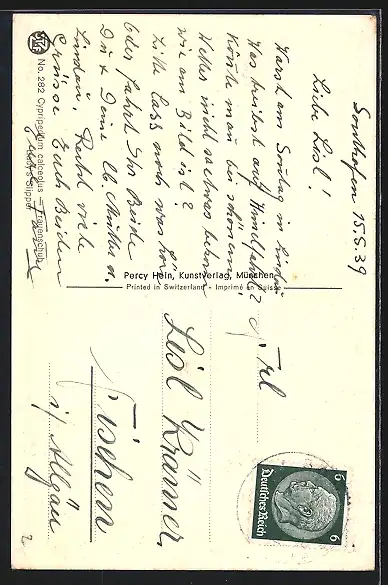 Sonthofen 15.5.39
Liebe Lisl!
Warst am Sonntag in Lindau
Was treibst auf Himmelfahrt?
Könnte man bei schönem
Wetter nicht sowas
wie am Bild ist?
Bitte lass noch was hören
Oder fahrt Ihr Beide
Du u. Deine lb. Mutter n.
Lindau. Recht viele
Grüsse Euch Beiden
No. 282 Cypripedium calceolus — Frauenschuh
Lady's Slipper
Percy Hein, Kunstverlag, München
Printed in Switzerland - Imprimé en Suisse
Frl
Lisl Krämer
Fischen
i/ Allgäu
Deutsches Reich
6
6
2